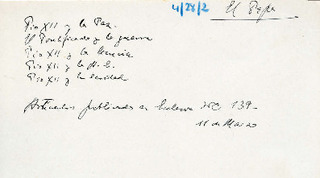 4/28/2
El Papa
Pio XII y la Paz.
El Pontificado y la guerra
Pio XII y la
Pio XII y la
Pio XII y la
Articulos publicados en Ecclesia nº 139-
11 de Marzo